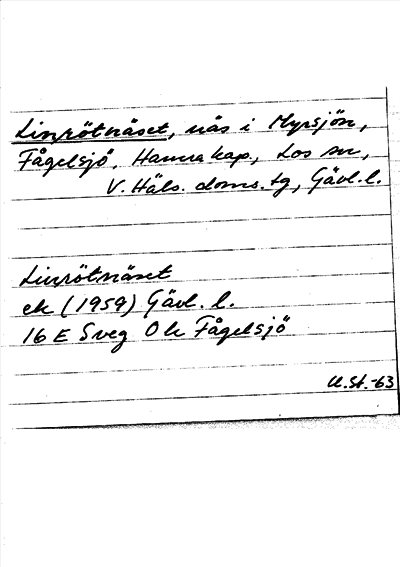 Linrötnäset, näs i Myrsjön,
Fågelsjö, Hamra kap., Los sn,
V. Häls. doms. tg, Gävl. l.
Linrötnäset
ek (1959) Gävl. l.
16 E Sveg O k Fågelsjö
U.St.-63